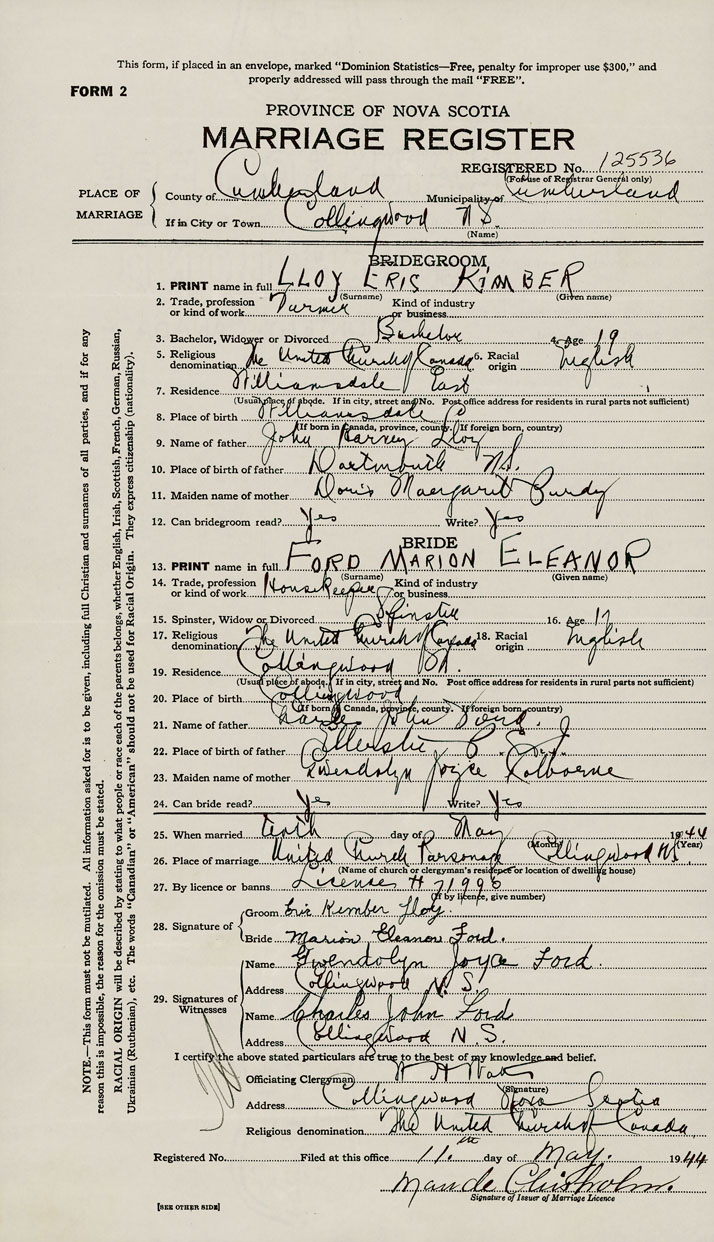 This form, if placed in an envelope, marked "Dominion Statistics—Free, penalty for improper use $300," and
properly addressed will pass through the mail "FREE".
FORM 2
PROVINCE OF NOVA SCOTIA
MARRIAGE REGISTER
REGISTERED No. 125536
(For use of Registrar General only)
PLACE OF MARRIAGE
County of Cumberland Municipality of Cumberland
If in City or Town Collingwood N S.
(Name)
BRIDEGROOM
1. PRINT name in full LLOY ERIS KIMBER
(Surname) (Given name)
2. Trade, profession or kind of work Farmer Kind of industry or business
3. Bachelor, Widower or Divorced Bachelor 4. Age 19
5. Religious denomination The United Church of Canada 6. Racial origin English
7. Residence Williamsdale East
(Usual place of abode. If in city, street and No. Post office address for residents in rural parts not sufficient)
8. Place of birth Williamsdale
(If born in Canada, province, county. If foreign born, country)
9. Name of father John Harvey Lloy
10. Place of birth of father Dartmouth N.S.
11. Maiden name of mother Doris Maergarit Purdy
12. Can bridegroom read? Yes Write? Yes
BRIDE
13. PRINT name in full FORD MARION ELEANOR
(Surname) (Given name)
14. Trade, profession or kind of work Housekeeper Kind of industry or business
15. Spinster, Widow or Divorced Spinster 16. Age 17
17. Religious denomination The United Church of Canada 18. Racial origin English
19. Residence Collingwood
(Usual place of abode. If in city, street and No. Post office address for residents in rural parts not sufficient)
20. Place of birth Collingwood
(If born in Canada, province, county. If foreign born, country)
21. Name of father John Ford.
22. Place of birth of father
23. Maiden name of mother Gwendolyn Joyce Colborne
24. Can bride read? Yes Write? Yes
25. When married tenth day of May 1944
(Month) (Year)
26. Place of marriage United Church Parsonage Collingwood NS.
(Name of church or clergyman's residence or location of dwelling house)
27. By licence or banns License # 71996
(If by licence, give number)
28. Signature of
Groom Eric Kimber Lloy.
Bride Marion Eleanor Ford.
29. Signatures of Witnesses
Name Gwendolyn Joyce Ford.
Address Collingwood N. S.
Name Charles John Ford
Address Collingwood N.S.
I certify the above stated particulars are true to the best of my knowledge and belief.
Officiating Clergyman W H
(Signature)
Address Collingwood Nova Scotia
Religious denomination The United Church of Canada.
Registered No. Filed at this office 11.th day of May. 1944
Maude Chisholm.
Signature of Issuer of Marriage Licence
[SEE OTHER SIDE]
NOTE.—This form must not be mutilated. All information asked for is to be given, including full Christian and surnames of all parties, and if for any
reason this is impossible, the reason for the omission must be stated.
RACIAL ORIGIN will be described by stating to what people or race each of the parents belongs, whether English, Irish, Scottish, French, German, Russian,
Ukrainian (Ruthenian), etc. The words "Canadian" or "American" should not be used for Racial Origin. They express citizenship (nationality).